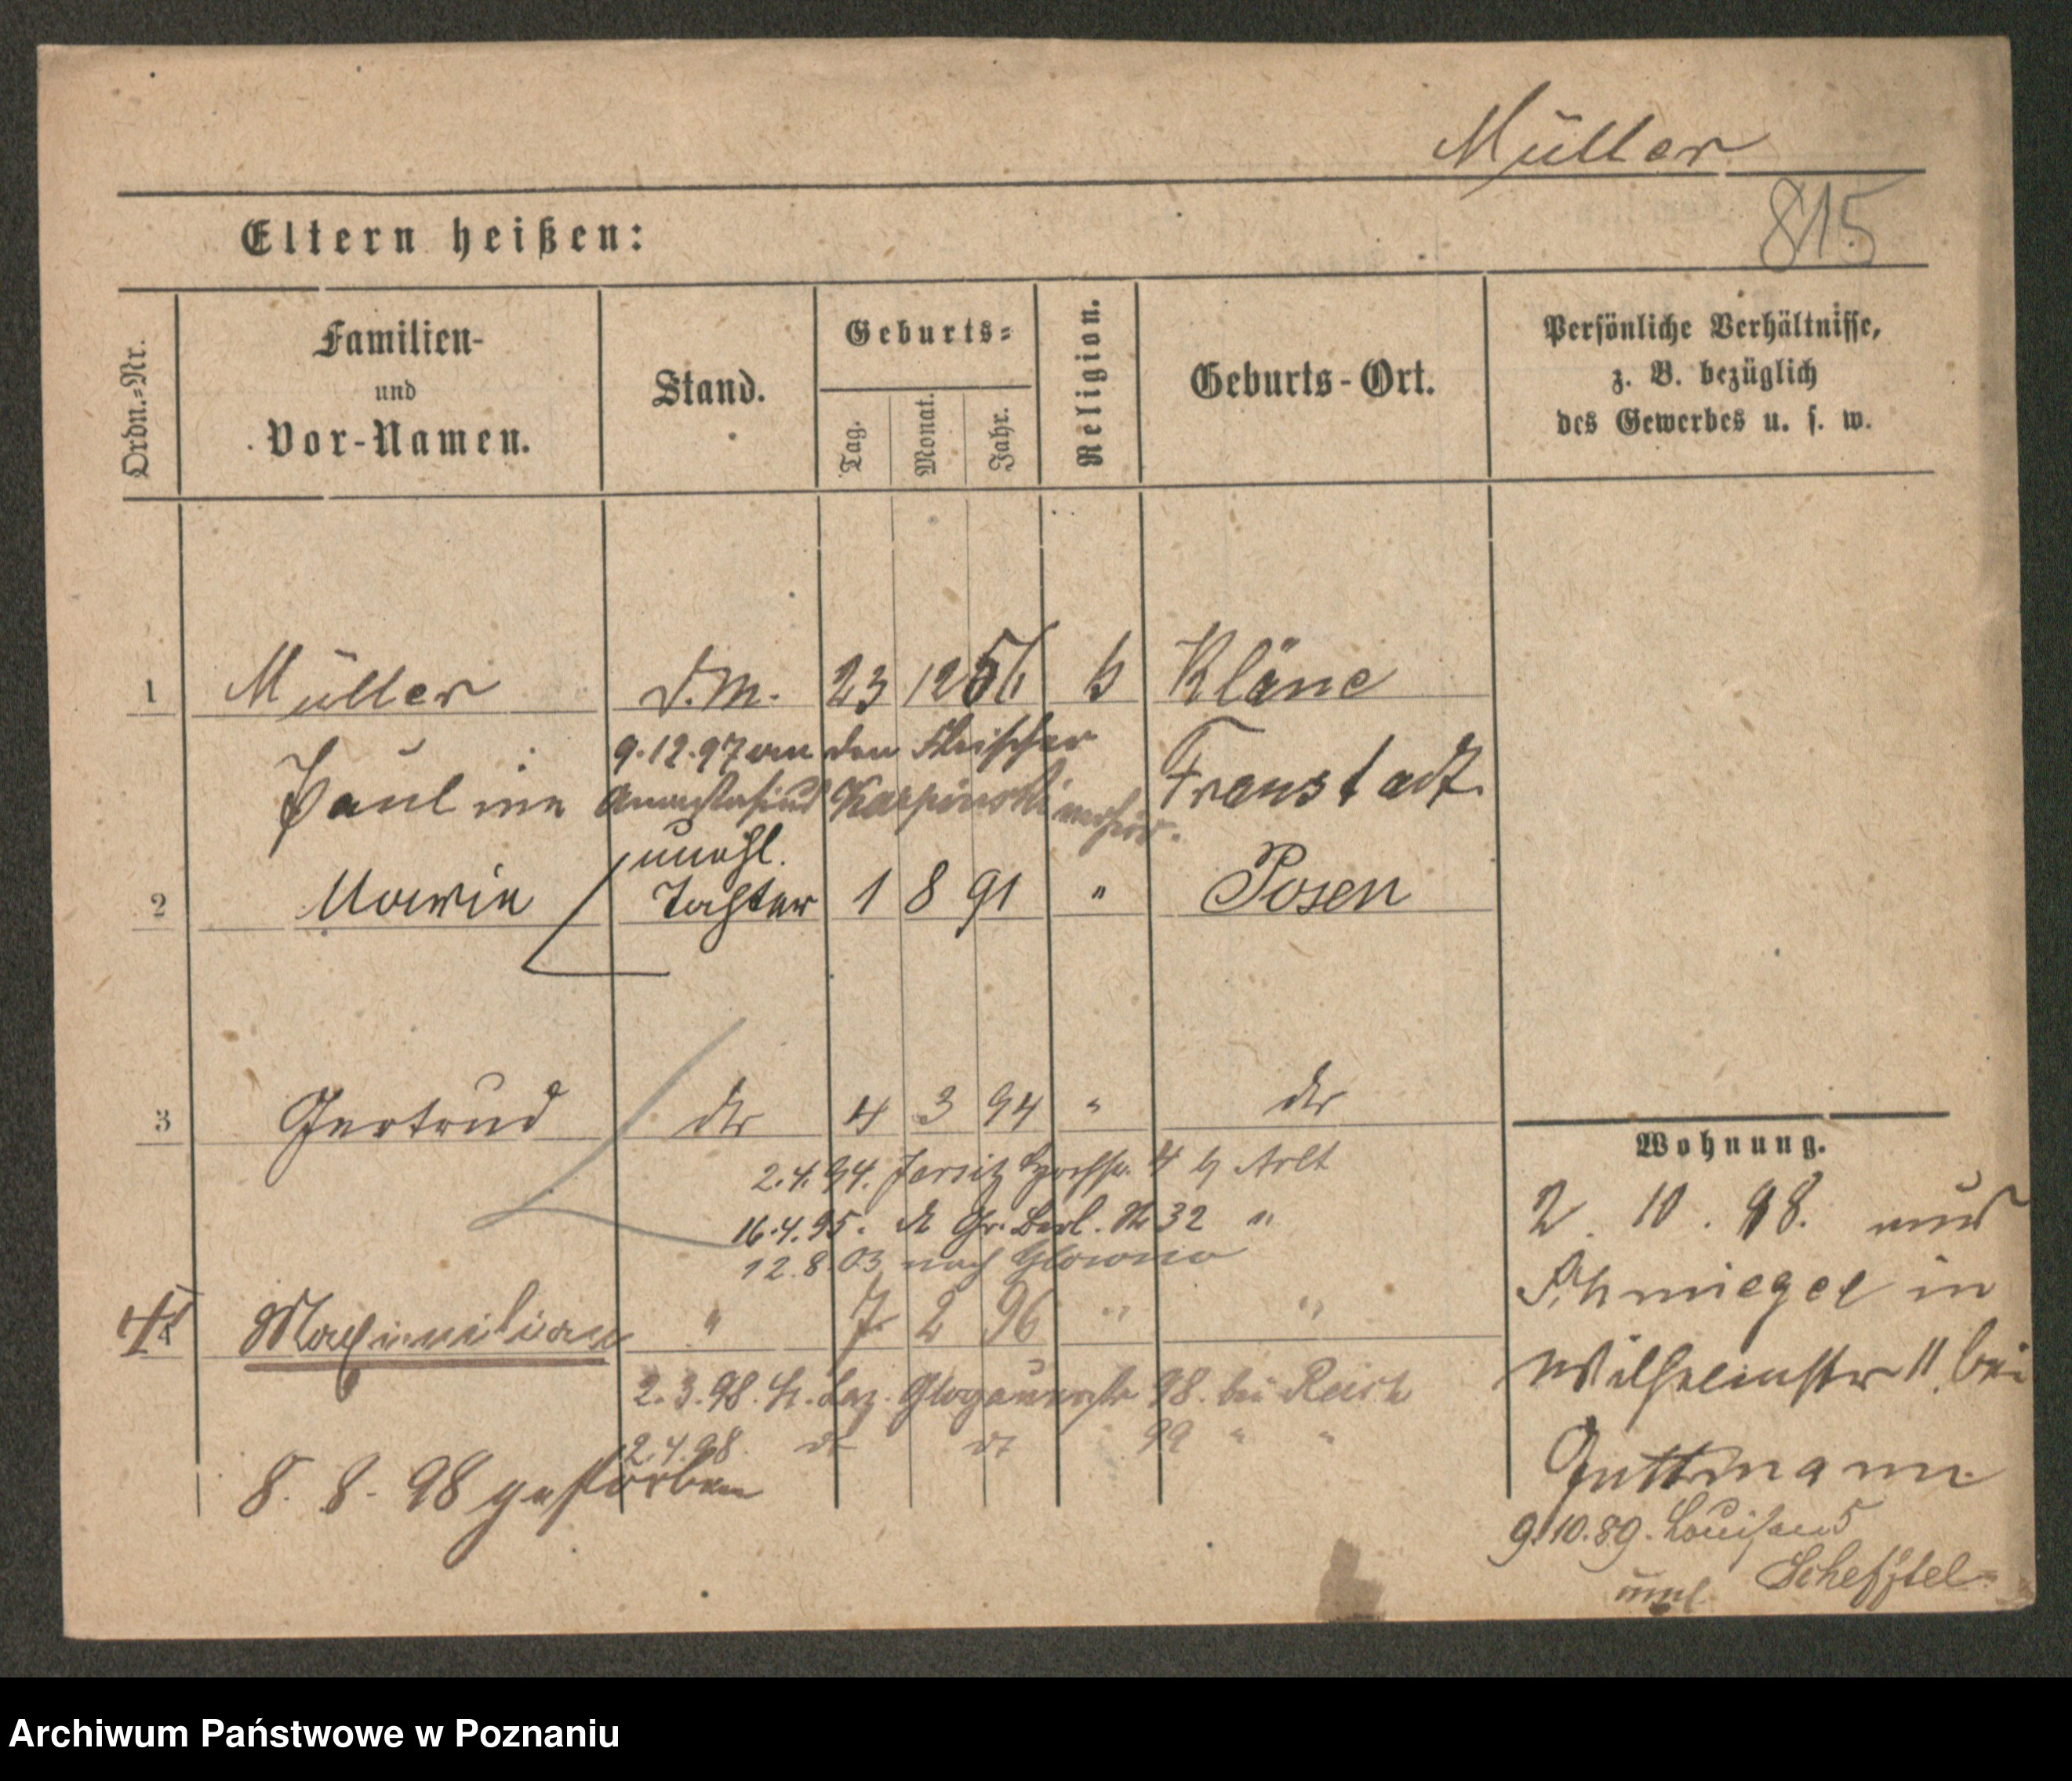 Müller
815
Eltern heißen:
Ordn.-Nr.
Familien-
und
Vor-Namen.
Stand.
Geburts-
Tag.
Monat.
Jahr.
Religion.
Geburts-Ort.
Persönliche Verhältnisse,
z. B. bezüglich
des Gewerbes u. s. w.
1 Müller d.M. 23 12 56 k Kläne
9.12.97 an den Fleischer
Pauline Anastasius Karpinski verheir. Fraustadt
unehl.
2 Marie Tochter 1 8 91 " Posen
3 Gertrud dto 4 3 94 " dto
2.4.94. Jersitz 4 b Arlt
16.4.95. Gr. Berl. Str 32 "
12.8.03 nach Glowno
4 Maximilian " 7 2 96 " "
2.3.98. St. Laz. Glogauerstr 98. bei Reich
2.4.98. dt dt 99 " "
8. 8. 98 gestorben
Wohnung.
2. 10. 88. aus
Schmiegel in
Wilhelmstr 11. bei
Guttmann
9.10.89. Louisen 5
Schefftel